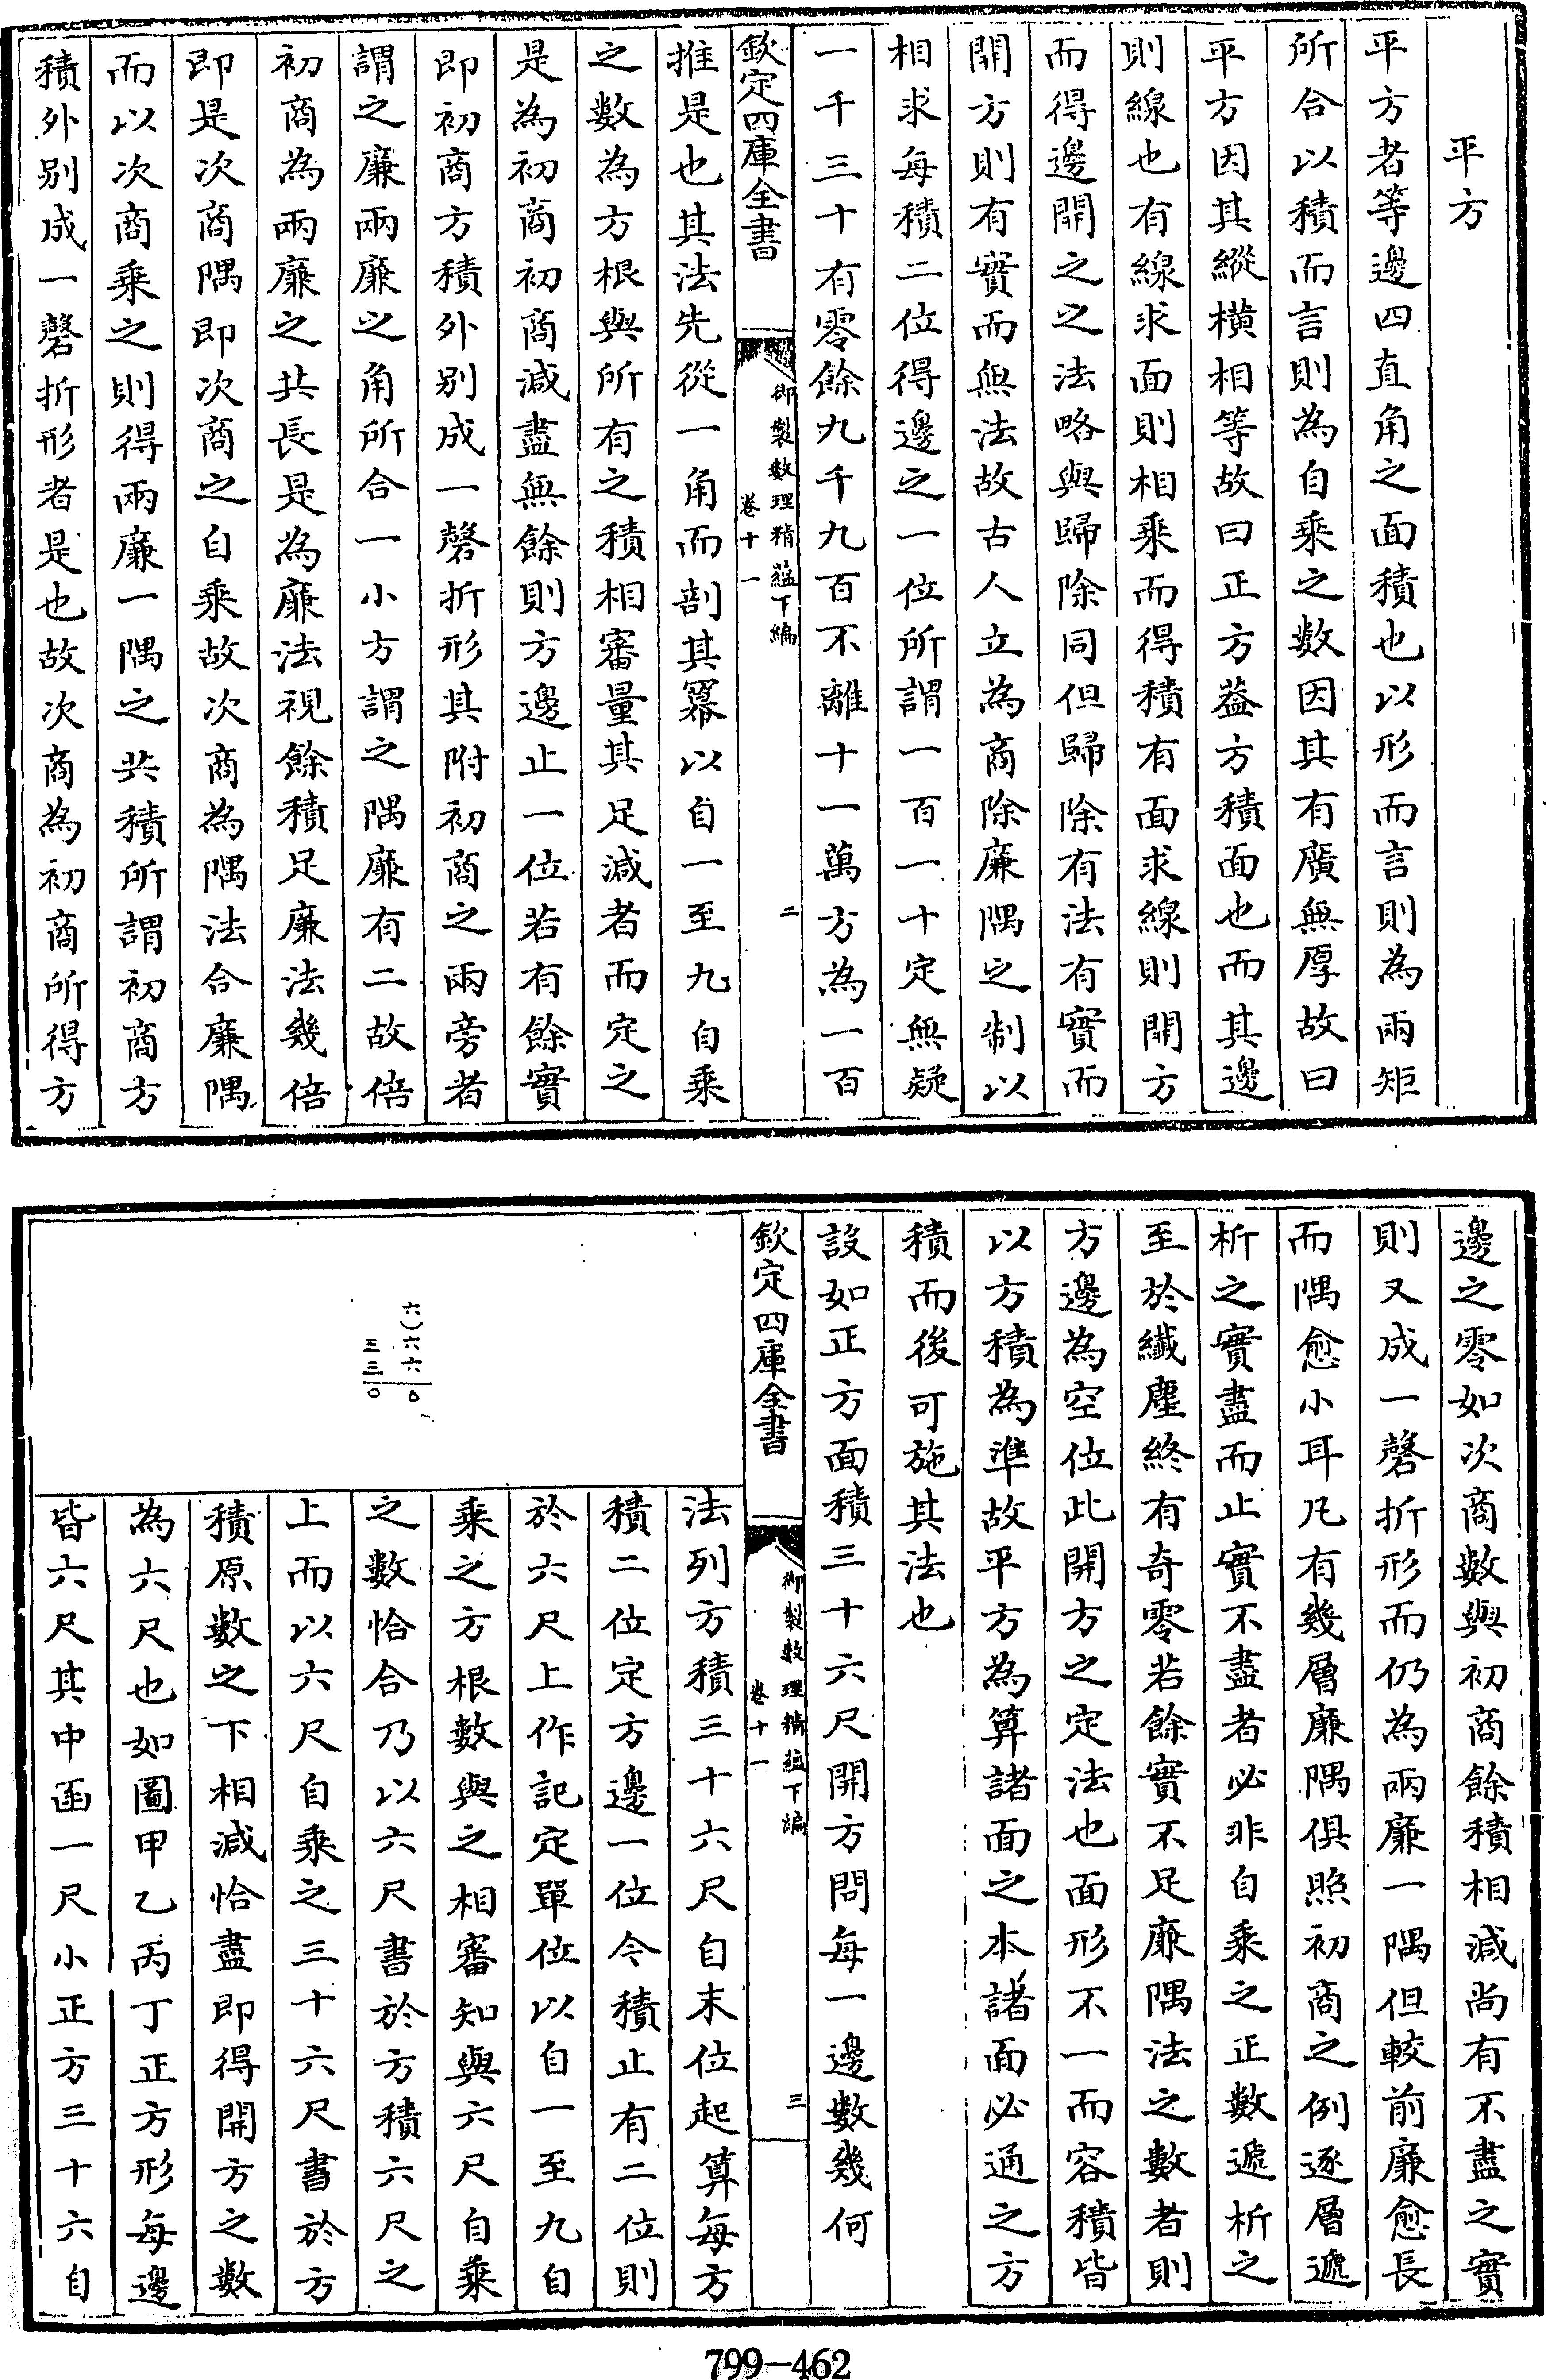 平方
平方者等邊四直角之面積也以形而言則為兩矩
所合以積而言則為自乘之數因其有廣無厚故曰
平方因其縱橫相等故曰正方葢方積面也而其邊
則線也有線求面則相乘而得積有面求線則開方
而得邊開之之法略與歸除同但歸除有法有實而
開方則有實而無法故古人立為商除廉隅之制以
相求每積二位得邊之一位所謂一百一十定無疑
一千三十有零餘九千九百不離十一萬方為一百
欽定四庫全書
御製數理精蘊下編
卷十一
二
推是也其法先從一角而剖其冪以自一至九自乘
之數為方根與所有之積相審量其足減者而定之
是為初商初商減盡無餘則方邊止一位若有餘實
即初商方積外別成一磬折形其附初商之兩旁者
謂之廉兩廉之角所合一小方謂之隅廉有二故倍
初商為兩廉之共長是為廉法視餘積足廉法幾倍
即是次商隅即次商之自乘故次商為隅法合廉隅
而以次商乘之則得兩廉一隅之共積所謂初商方
積外別成一磬折形者是也故次商為初商所得方
邊之零如次商數與初商餘積相減尚有不盡之實
則又成一磬折形而仍為兩廉一隅但較前廉愈長
而隅愈小耳凡有幾層廉隅俱照初商之例逐層遞
析之實盡而止實不盡者必非自乘之正數遞析之
至於纖塵終有奇零若餘實不足廉隅法之數者則
方邊為空位此開方之定法也面形不一而容積皆
以方積為準故平方為算諸面之本諸面必通之方
積而後可施其法也
設如正方面積三十六尺開方問每一邊數幾何
欽定四庫全書
御製數理精蘊下編
卷十一
三
法列方積三十六尺自末位起算每方
積二位定方邊一位今積止有二位則
於六尺上作記定單位以自一至九自
乘之方根數與之相審知與六尺自乘
之數恰合乃以六尺書於方積六尺之
上而以六尺自乘之三十六尺書於方
積原數之下相減恰盡即得開方之數
為六尺也如圖甲乙丙丁正方形每邊
皆六尺其中函一尺小正方三十六自
六）六六〇
三三〇
799-462